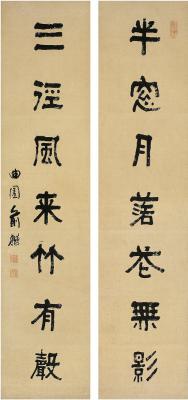 半窓月落花無影
三徑風来竹有聲
曲園俞樾